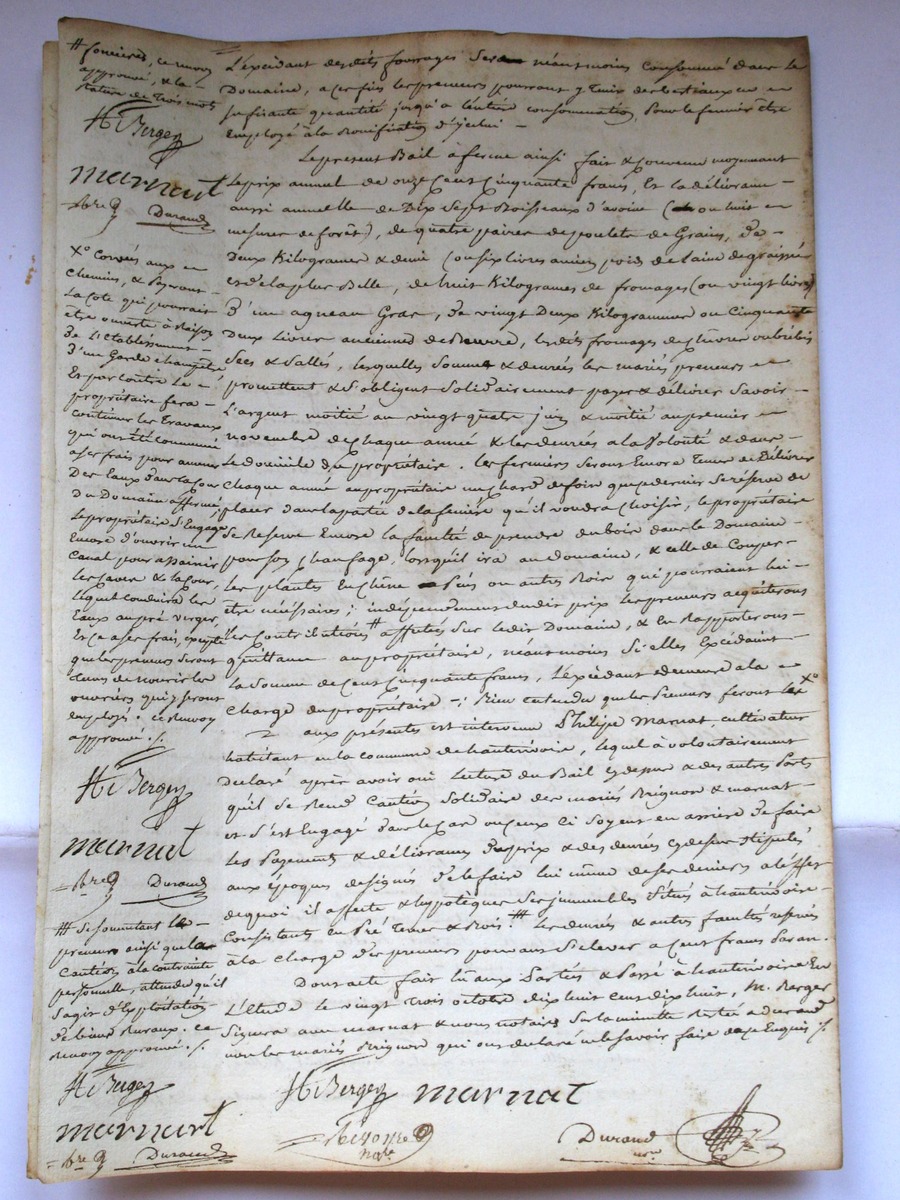 L'excédant desdits fourrages sera néantmoins consommé dans le
Domaine, à ces fins les preneurs pourront y tenir des bestiaux en
sufisante quantité jusqu'a l'entière consommation, pour le fumier être
employé à la bonification d'ycelui –
Le présent Bail à ferme ainsi fait & convenu moyennant
le prix annuel de onze Cent Cinquante francs, Et la délivrance
aussi annuelle de Dix Sept Boisseaux d'avoine (ou huit
mesures de forêt), de quatre paires de poulets de Grains, De
Deux Kilogrames & demi (ou six livres ancien poids de laine
et de la plus Belle, de huit Kilogrames de fromages (ou vingt livres)
D'un agneau Gras, De vingt Deux Kilogrammes ou Cinquante
Deux Livres anciennes de Beurre, lesdits fromages de chèvres ou brebis
Secs & Sallés, lesquelles Sommes & denrées les mariés preneurs
promettent & s'obligent Solidairement payer & délivrer Savoir –
L'argent moitié au vingt quatre juin & moitié au premier
novembre de chaque année & les denrées a la Volonté & dans
le domicile du propriétaire. les fermiers seront Encore Tenus de Délivrer
chaque année au propriétaire un char de foin que ce dernier se réserve de
placer dans la partie de la fenière qu'il voudra choisir, le propriétaire
se Reserve Encore la faculté de prendre du bois dans le Domaine –
pour son chauffage, lorsqu'il ira au domaine, & celle de Couper –
les plantes En chêne Pins ou autres Bois qui pourraient lui –
être nécéssaires ; indépendemment dudit prix les preneurs acquiteront
les Contributions # affectés Sur ledit Domaine, & En Rapporterons –
quittance au propriétaire, néantmoins Si elles Excédaint –
la Somme de Cent Cinquante francs, L'excédant demeure à la
charge du propriétaire –; Bien entendu que les Preneurs feront les X°
aux présentes est intervenu Philipe Marnat, cultivateur
habitant en la commune de hauterivoire, lequel à volontairement
déclaré après avoir oui Lecture du Bail cy dessus & des autres Parts
qu'il se Rend Caution Solidaire des mariés Brignon & marnat –
et s'est Engagé dans le cas ou ceux ci Soyent en arriere De faire
les Payements & délivrances du prix & des denrées cy dessus Stipulés
aux époques designés de le faire lui même de ses deniers a l'effet
de quoi il affecte & hyppotèque Ses immeubles Situés à hauterivoire –
Consistants en Pré Terres & Bois. ## les denrées & autres facultés reservés
à la charge des preneurs pouvans S'elever a Cent francs Par an.
Dont acte fait lu aux Parties & Passé à hauterivoire En
L'Etude le vingt Trois octobre dix huit cent dix huit, M. Berger
Signera avec marnat & nous notaires Sur la minutte Restée a durand
non les mariés Brignon qui ont déclaré ne le Savoir faire de ce Enquis /.
H. Berger marnat
notre
Durand
notre
# foncières, ce renvoi
approuvé, & la
rature de Trois mots
H. Berger
marnat
Durand
X° Corvées aux
chemins, & Payeront
La Cote qui pourrait
être ouverte à Raison
De L'Etablissement
D'un Garde champêtre
Et par contre Le
propriétaire fera –
continuer les Travaux
qui ont été commencé
a ses frais pour amener
Des Eaux dans la Cour
Du Domaine affermé,
le propriétaire S'Engage
Encore d'ouvrir un
Canal pour assainir
les caves & la Cour,
lequel conduira les
Eaux au pré verger,
Et ce a ses frais, excepté
que les preneurs Seront
tenus de nourrir les
ouvriers qui y Seront
employés. ce Renvoy
approuvé ./.
H. Berger
marnat
Durand
## Se Soumettant les
preneurs ainsi que la
Caution à la contrainte
personnelle, attendu qu'il
S'agit d'Exploitation
de biens Ruraux. ce
Renvoy approuvé ./.
H. Berger
marnat
Durand